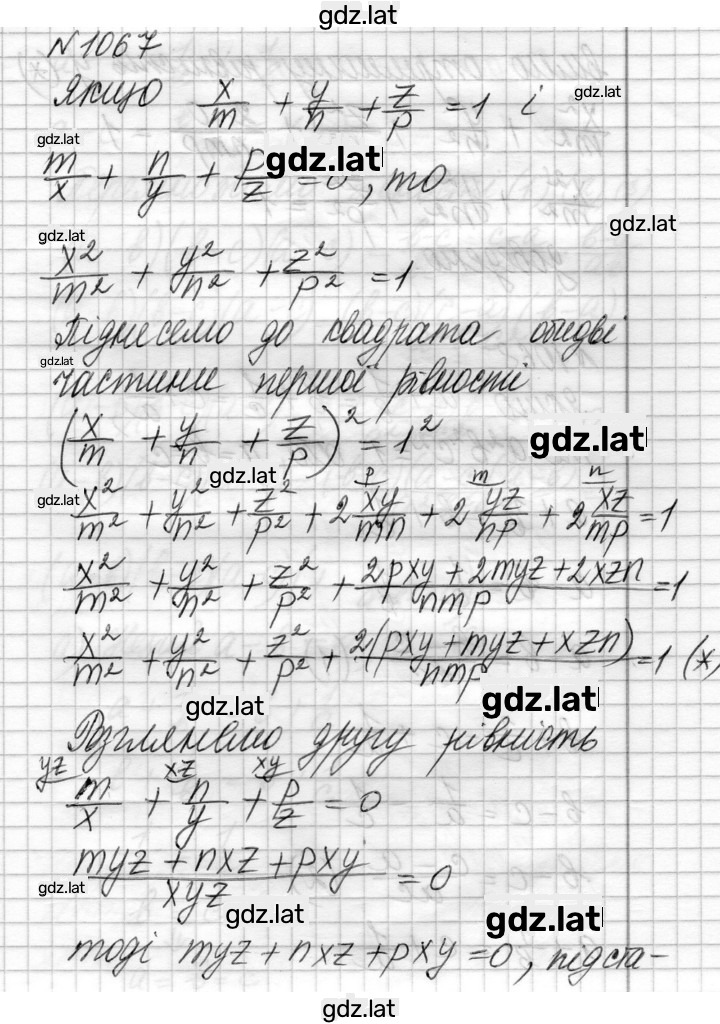 gdz.lat
N 1067
Якщо x/m + y/n + z/p = 1 і
gdz.lat
gdz.lat
m/x + n/y + p/z = 0, то
gdz.lat
gdz.lat
gdz.lat
x²/m² + y²/n² + z²/p² = 1
Піднесемо до квадрата обидві
gdz.lat
частини першої рівності
(x/m + y/n + z/p)² = 1²
gdz.lat
gdz.lat
gdz.lat
p m n
x²/m² + y²/n² + z²/p² + 2 xy/mn + 2 yz/np + 2 xz/mp = 1
x²/m² + y²/n² + z²/p² + (2pxy + 2myz + 2xzn)/nmp = 1
x²/m² + y²/n² + z²/p² + 2(pxy + myz + xzn)/nmp = 1 (*)
gdz.lat
gdz.lat
Розглянемо другу рівність
yz xz xy
m/x + n/y + p/z = 0
(myz + nxz + pxy)/xyz = 0
gdz.lat
gdz.lat
gdz.lat
тоді myz + nxz + pxy = 0, підста-
gdz.lat